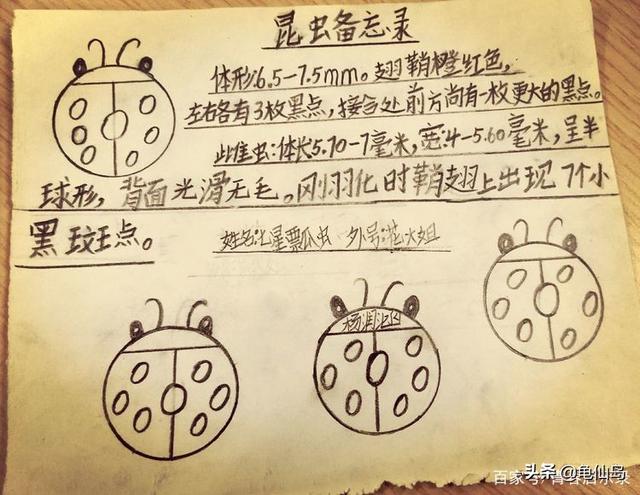 昆虫备忘录
体形:6.5-7.5mm。翅鞘橙红色,
左右各有3枚黑点,接合处前方尚有一枚更大的黑点。
此雌虫:体长5.70-7毫米,宽:4-5.60毫米,呈半
球形,背面光滑无毛。刚羽化时鞘翅上出现7个小
黑斑点。
姓名:七星瓢瓜虫 外号:花大姐
头条@龟仙岛